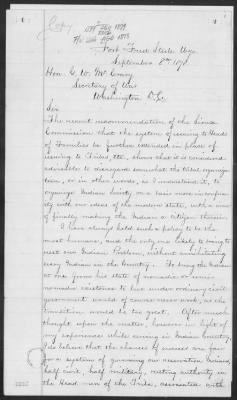 Copy
Fort Fred Steele Wyo
September 8th 187
Hon. G. W. McCrary
Secretary of War
Washington D.C.
Sir
The recent recommendation of the Sioux
Commission that the system of issuing to Heads
of Families be further extended in place of
issuing to Tribes, etc. shows that it is considered
advisable to disregard somewhat the tribal organiza-
tion, or in other words, as I understand it, to
organize Indian Society on a basis more in conform-
ity with our ideas of the modern state, with a view
of finally making the Indian a citizen therein.
I have always held such a policy to be the
most humane, and the only one likely to bring to
rest our Indian Problem, without annihilating
every Indian in the Country. To bring the Indian
at once from his state of nomadic or semi-
nomadic existence to live under ordinary civil
government would of course never work, as the
transition would be too great. After much
thought upon the matter, however in light of
my experiences while serving in Indian Country,
I do believe that the chances of success are fair
for a system of governing our reservation Indians,
half civil, half military, vesting authority in
the Head men of the Tribe, associated with